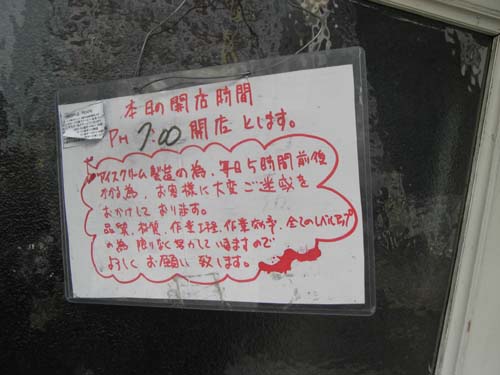 本日の開店時間
PM 7:00 開店とします。
アイスクリーム製造の為、毎日5時間前後
かかる為、お客様に大変ご迷惑を
おかけしております。
品質、材質、作業工程、作業効率、全てのレベルアップ
の為 限りなく努力していますので
よろしくお願い致します。